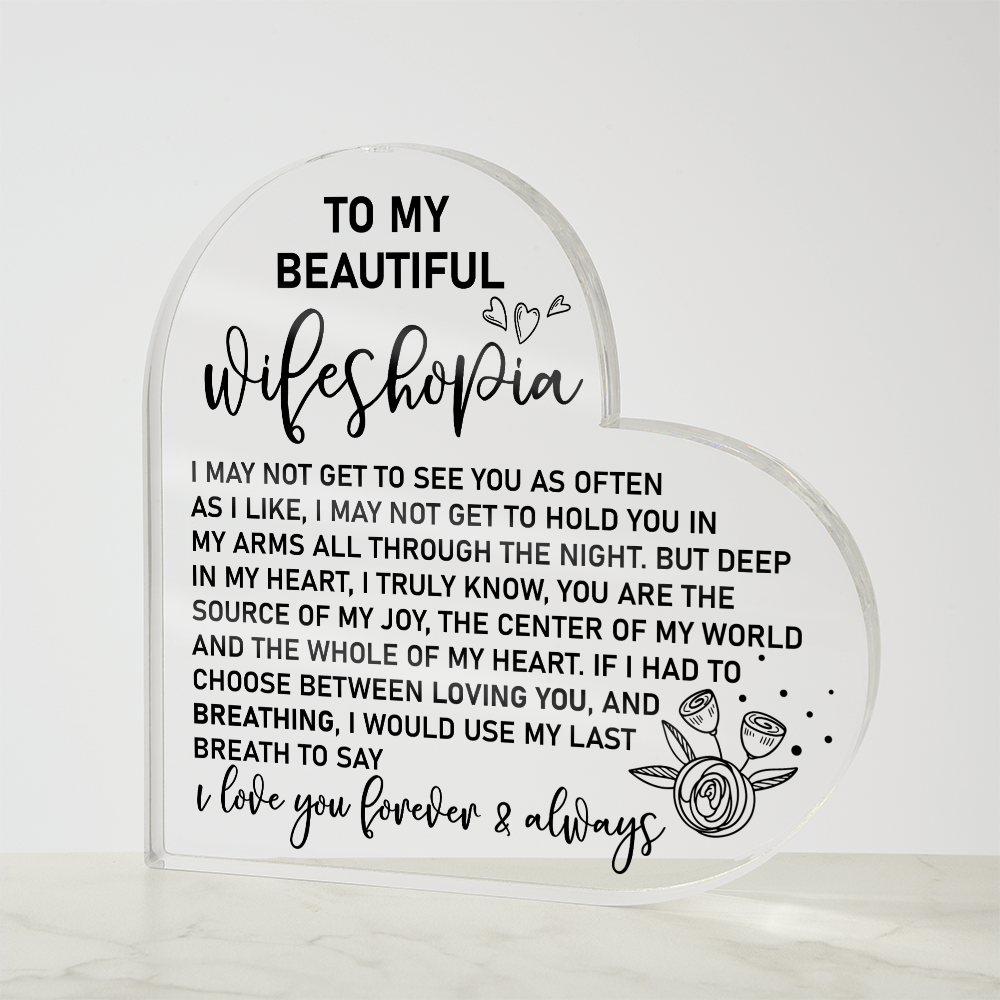 TO MY
BEAUTIFUL
wifeshopia
I MAY NOT GET TO SEE YOU AS OFTEN
AS I LIKE, I MAY NOT GET TO HOLD YOU IN
MY ARMS ALL THROUGH THE NIGHT. BUT DEEP
IN MY HEART, I TRULY KNOW, YOU ARE THE
SOURCE OF MY JOY, THE CENTER OF MY WORLD
AND THE WHOLE OF MY HEART. IF I HAD TO
CHOOSE BETWEEN LOVING YOU, AND
BREATHING, I WOULD USE MY LAST
BREATH TO SAY
i love you forever & always